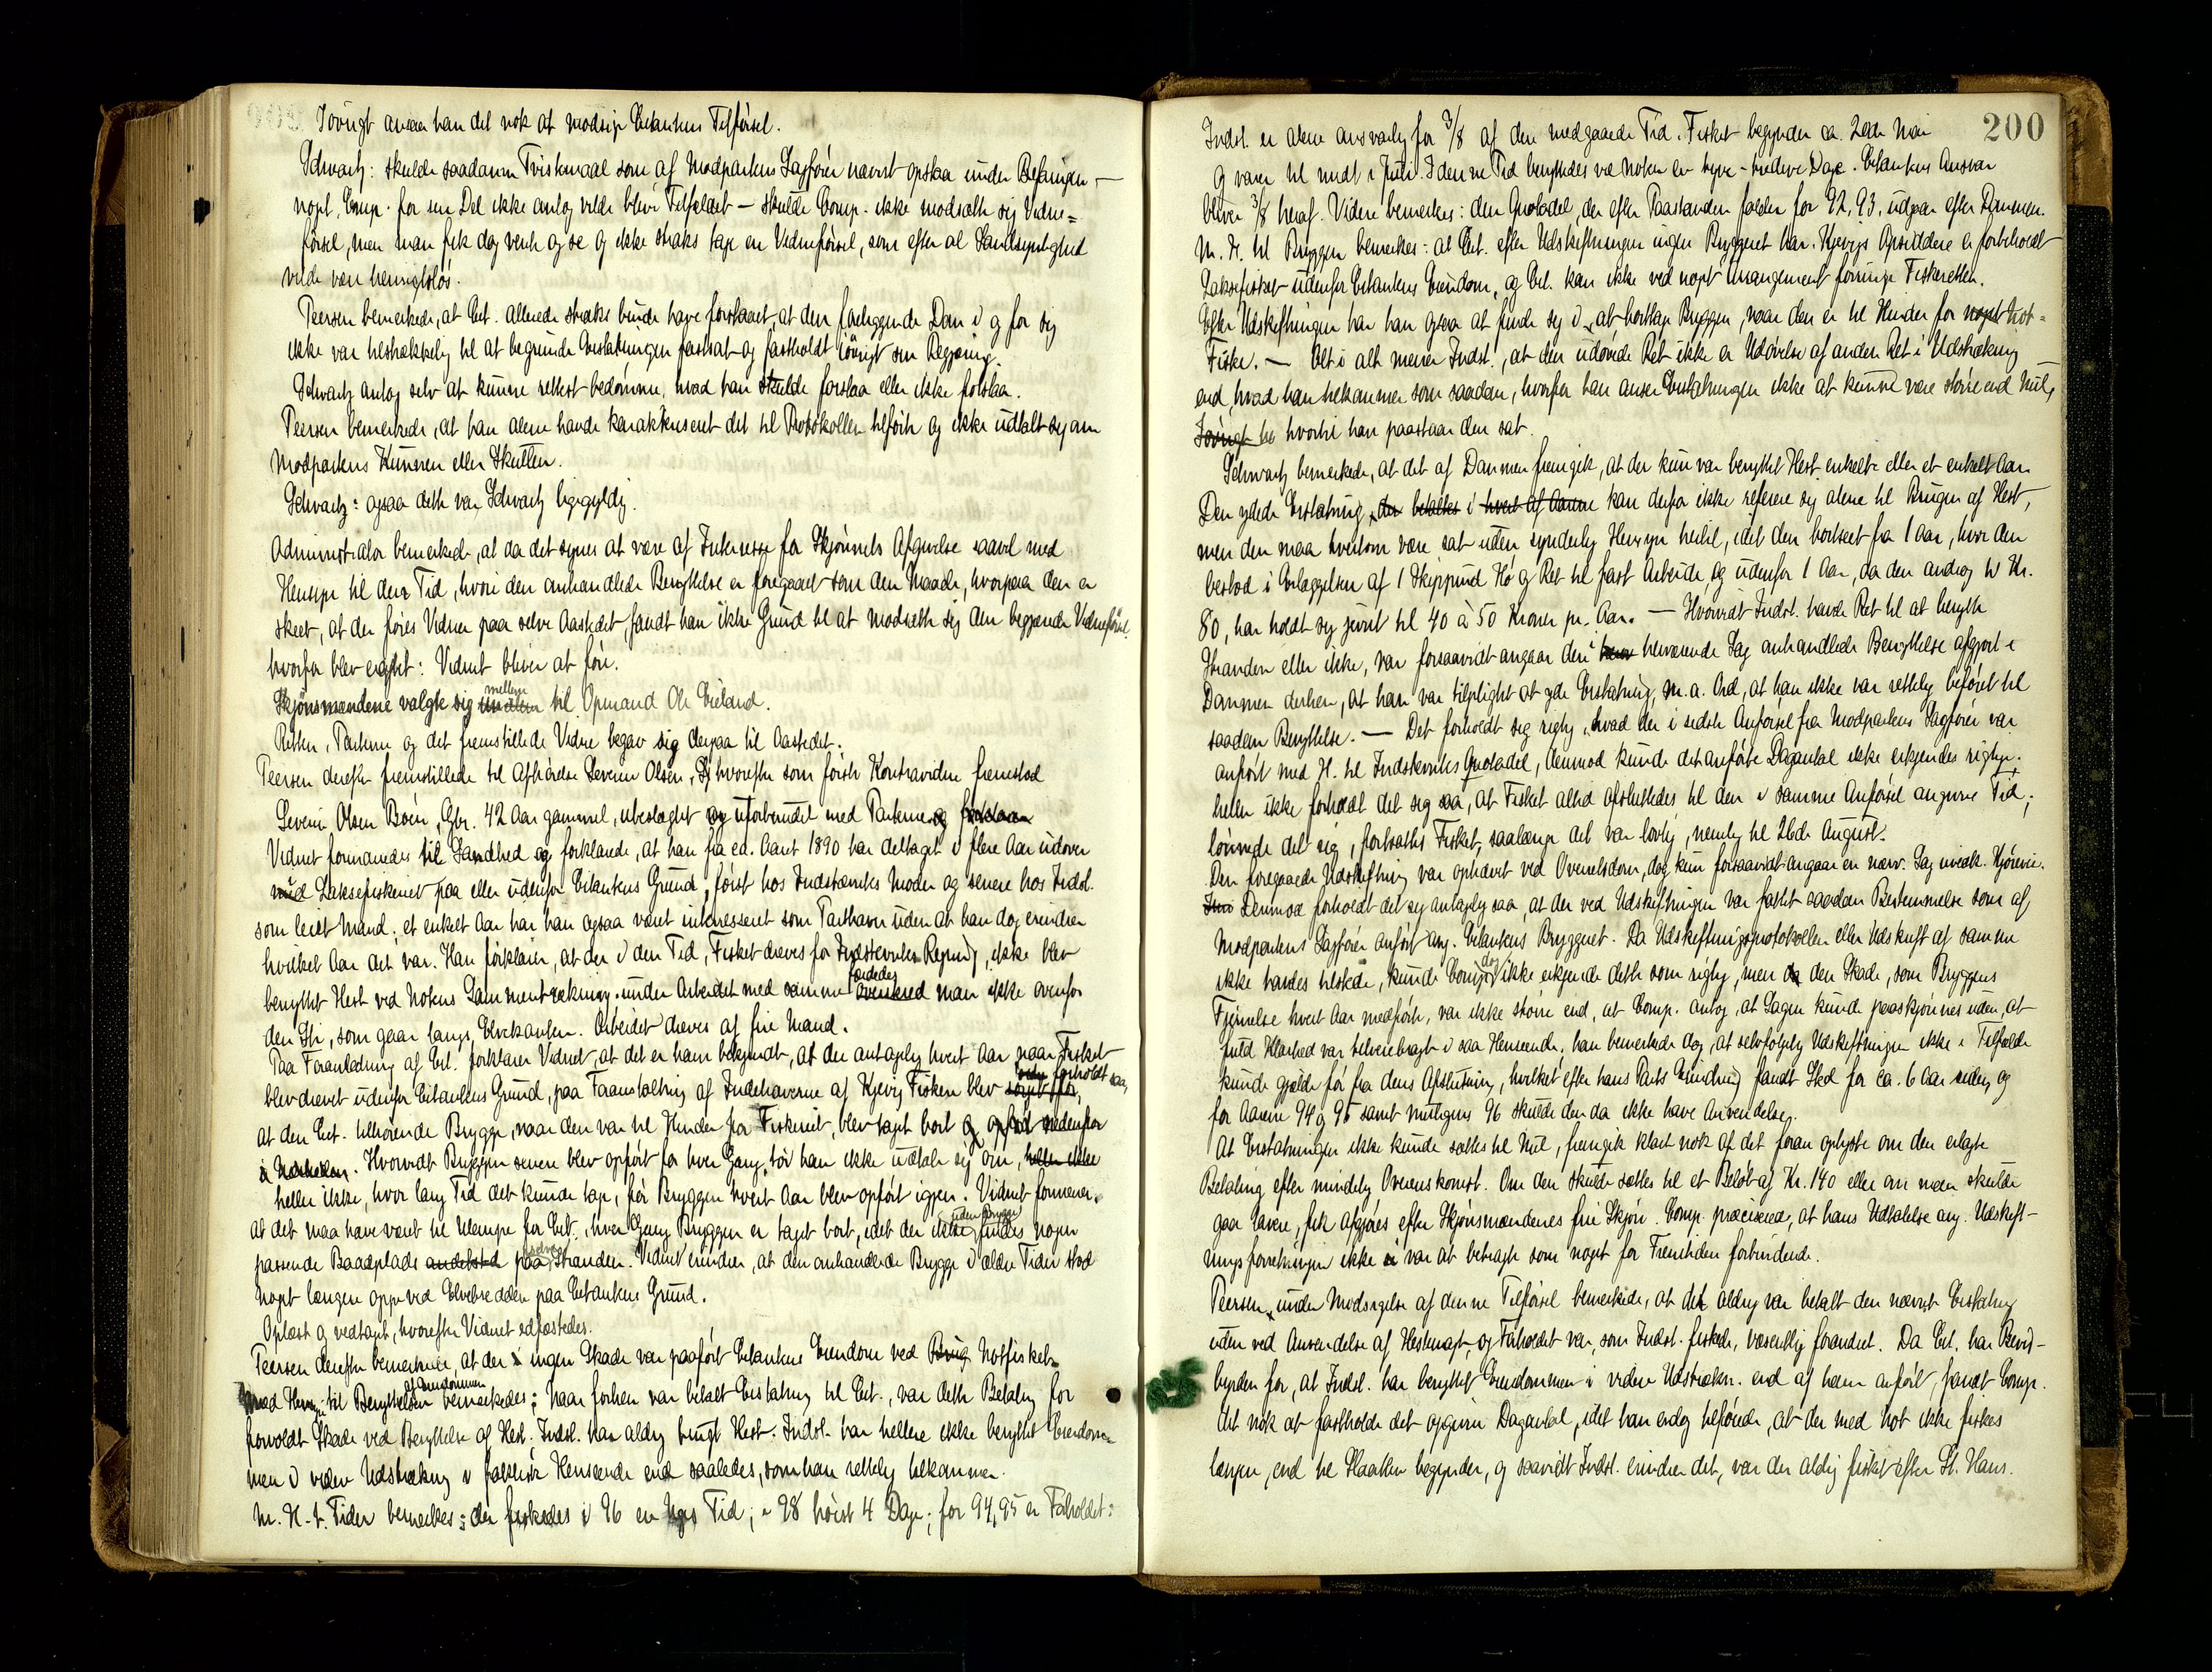 Iøvrigt ansaa han det nok at modsige Citantens Tilførsel.
Schwartz: skulde saadanne Tvistemaal som af Modpartens Sagfører nævnt opstaa under Befaringen —
noget, Comp. for sin Del ikke antog vilde blive Tilfældet — skulde Comp. ikke modsætte sig Vidne=
førsel, men man fik dog vente og se og ikke straks tage en Vidneførsel, som efter al Sandsynlighed
vilde være hensigtsløs.
Peersen bemerkede, at Cit. allerede straks burde have forstaaet, at den foreliggende Dom i og for sig
ikke var tilstrækkelig til at begrunde Erstatningen fastsat og fastholdt iøvrigt sin Begjæring.
Schwartz antog selv at kunne rettest bedømme, hvad han skulde forstaa eller ikke forstaa.
Peersen bemerkede, at han alene havde karakteriseret det til Protokollen tilførte og ikke udtalt sig om
Modpartens Kunnen eller Skullen.
Schwartz: ogsaa dette var Schwartz ligegyldig.
Administrator bemerkede, at da det synes at være af Interesse for Skjønnets Afgivelse saavel med
Hensyn til den Tid, hvori den omhandlede Benyttelse er foregaaet som den Maade, hvorpaa den er
skeet, at der føres Vidner paa selve Aastedet, fandt han ikke Grund til at modsætte sig den begjærede Vidneførsel,
hvorfor blev eragtet: Vidnet bliver at føre.
Skjønsmændene valgte sig mellem til Opmand Ole Eieland.
Retten, Parterne og det fremstillede Vidne begav sig derpaa til Aastedet.
Peersen derefter fremstillede til Afhørelse Severin Olsen, hvorefter som første Kontravidne fremstod
Severin Olsen Boen, Gbr. 42 Aar gammel, ubeslægtet og ubesvogret med Parterne
Vidnet formanedes til Sandhed og forklarede, at han fra ca. Aaret 1890 har deltaget i flere Aar udover
Laksefiskeriet paa eller udenfor Citantens Grund, først hos Indstævntes Moder og senere hos Indst.
som leiet Mand; et enkelt Aar har han ogsaa været interesseret som Parthaver uden at han dog erindrer
hvilket Aar det var. Han forklarer, at der i den Tid, Fisket dreves for Indstevntes Regning, ikke blev
benyttet Hest ved Notens Sammentrækning. under Arbeidet med samme færdedes man ikke ovenfor
den Sti, som gaar langs Elvekanten. Arbeidet dreves af fire Mand.
Paa Foranledning af Cit. forklarer Vidnet, at det er ham bekjendt, at der antagelig hvert Aar naar Fisket
blev drevet udenfor Citantens Grund, paa Foranstaltning af Indehaverne af Kjevig Fiskeri blev forholdt saa,
at den Cit. tilhørende Brygge, naar den var til Hinder for Fiskeriet, blev taget bort
Hvorvidt Bryggen senere blev opført for hver Gang, tør han ikke udtale sig om,
heller ikke, hvor lang Tid det kunde tage, før Bryggen hvert Aar blev opført igjen. Vidnet formener,
at det maa have været til Ulempe for Cit., hver Gang Bryggen er taget bort, idet der uden Bryggen ikke findes nogen
passende Baadplads paa selve Stranden. Vidnet erindrer, at den omhandlede Brygge i ældre Tider stod
noget længere oppe ved Elvebredden paa Citantens Grund.
Oplæst og vedtaget, hvorefter Vidnet edfæstedes.
Peersen derefter bemerkede, at der ingen Skade var paaført Citantens Eiendom ved Notfisket.
Med Hensyn til Benyttelsen af Eiendommen bemerkedes: Naar forhen var betalt Erstatning til Cit., var dette Betaling for
forvoldt Skade ved Benyttelse af Hest. Indst. har aldrig brugt Hest. Indst. har hellere ikke benyttet Eiendom-
men i videre Udstrækning i faktisk Henseende end saaledes, som han rettelig tilkommer.
M. H. t. Tiden bemerkes: der fiskedes i 96 en Uges Tid; i 98 høist 4 Dage; for 94, 95 er Forholdet:
200
Indst. er alene ansvarlig for 3/8 af den medgaaede Tid. Fisket begynder ca. 20de Mai
og varer til midt i Juli. I denne Tid benyttedes ved Noten en tyve-tredive Dage. Citantens Ansvar
bliver 3/8 heraf. Videre bemerkes: den Quotadel, der efter Paastanden falder for 92, 93, udgaar efter Dommen.
M. H. til Bryggen bemerkes: at Cit. efter Udskiftningen ingen Bryggeret har. Kjevigs Opsiddere er forbeholdt
Laksefisket udenfor Citantens Eiendom, og Cit. kan ikke ved noget Arrangement forringe Fiskeretten.
Efter Udskiftningen har han ogsaa at finde sig i, at borttage Bryggen, naar den er til Hinder for Not=
Fiske. — Alt i alt mener Indst., at den udøvede Ret ikke er Udøvelse af anden Ret i Udstrækning
end, hvad han tilkommer som saadan, hvorfor han anser Erstatningen ikke at kunne være større end Nul,
hvortil han paastaar den sat.
Schwartz bemerkede, at det af Dommen fremgik, at der kun var benyttet Hest enkelte eller et enkelt Aar.
Den ydede Erstatning kan derfor ikke referere sig alene til Brugen af Hest,
men den maa hvertom være sat uden synderlig Hensyn hertil, idet den bortseet fra 1 Aar, hvor den
bestod i Erlæggelsen af 1 Skippund Hø og Ret til fast Arbeide, og udenfor 1 Aar, da den androg til Kr.
80, har holdt sig jevnt til 40 à 50 Kroner pr. Aar. — Hvorvidt Indst. havde Ret til at benytte
Stranden eller ikke, var forsaavidt angaar den i herværende Sag omhandlede Benyttelse afgjort i
Dommen derhen, at han var tilpligtet at yde Erstatning, m. a. Ord, at han ikke var rettelig beføiet til
saadan Benyttelse. — Det forholdt sig rigtig, hvad der i sidste Anførsel fra Modpartens Sagfører var
anført med H. til Indstevntes Quotadel, derimod kunde det anførte Dagantal ikke erkjendes rigtigt.
heller ikke forholdt det sig saa, at Fisket altid afsluttedes til den i samme Anførsel angivne Tid;
lønnede det sig, fortsattes Fisket, saalænge det var lovlig, nemlig til 26de August.
Den foregaaede Udskiftning var ophævet ved Overretsdom, dog kun forsaavidt angaar en nærv. Sag uvedk. Kjørevei.
Derimod forholdt det sig antagelig saa, at der ved Udskiftningen var fattet saadan Bestemmelse som af
Modpartens Sagfører anført ang. Citantens Bryggeret. Da Udskiftningsprotokollen eller Udskrift af samme
ikke havdes tilstede, kunde Comp. dog ikke erkjende dette som rigtig, men den Skade, som Bryggens
Fjernelse hvert Aar medførte, var ikke større end, at Comp. antog, at Sagen kunde paaskjønnes uden, at
fuld Klarhed var tilveiebragt i saa Henseende. han bemerkede dog, at selvfølgelig Udskiftningen ikke i Tilfælde
kunde gjælde før fra dens Afslutning, hvilket efter hans Parts Erindring fandt Sted for ca. 6 Aar siden, og
for Aarene 94 og 95 samt muligens 96 skulde den da ikke have Anvendelse.
At Erstatningen ikke kunde sættes til Nul, fremgik klart nok af det foran oplyste om den erlagte
Betaling efter mindelig Overenskomst. Om den skulde sættes til et Beløb af Kr. 140 eller om man skulde
gaa lavere, fik afgjøres efter Skjønsmændenes frie Skjøn. Comp. præciserede, at hans Udtalelse ang. Udskift-
ningsforretningen ikke var at betragte som noget for Fremtiden forbindende.
Peersen, under Modsigelse af denne Tilførsel bemerkede, at det aldrig var betalt den nævnte Erstatning
uden ved Anvendelse af Hestemagt, og Forholdet var, som Indst. fiskede, væsentlig forandret. Da Cit. har Bevis-
byrden for, at Indst. har benyttet Eiendommen i videre Udstrækn. end af ham anført, fandt Comp.
det nok at fastholde det opgivne Dagantal, idet han endog tilføiede, at der med Not ikke fiskes
længere, end til Slaatten begynder, og saavidt Indst. erindrer det, var der aldrig fisket efter St. Hans.